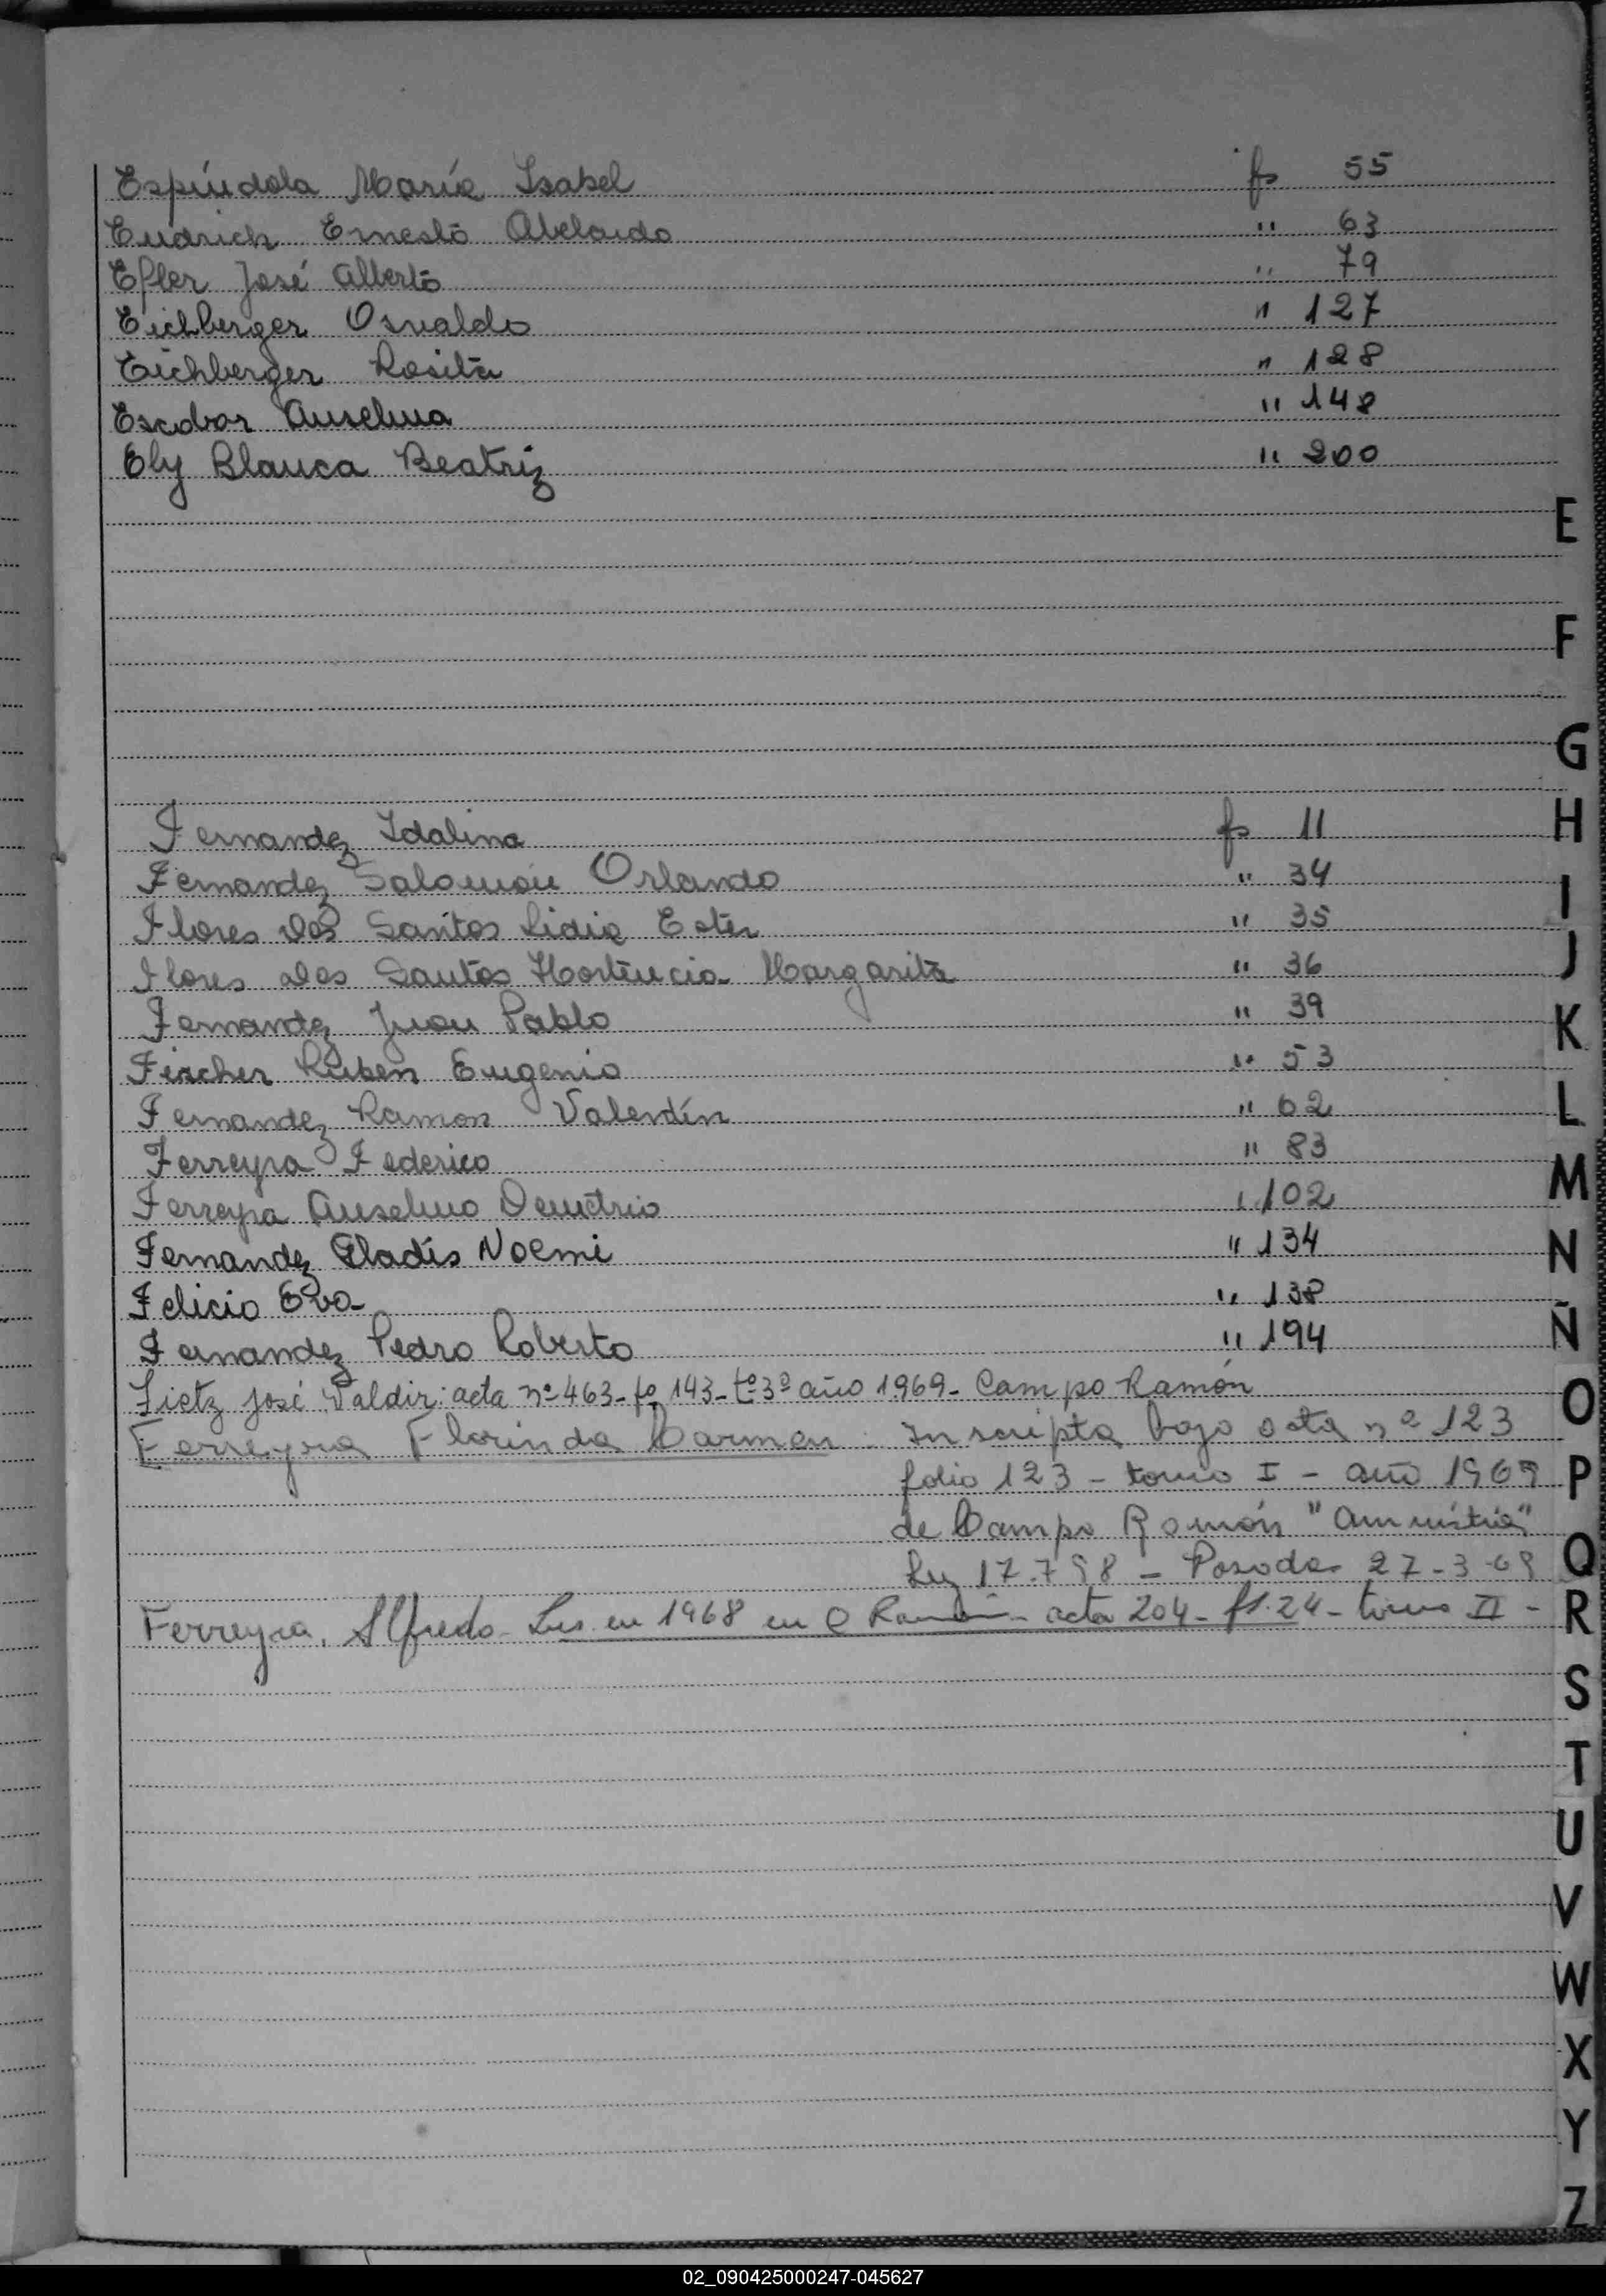 Espíndola María Isabel fs 55
Eudrich Ernesto Abelardo " 63
Efler José Alberto " 79
Eichberger Osvaldo " 127
Eichberger Rosita " 128
Escobar Anselma " 148
Ely Blanca Beatriz " 200
E
F
G
Fernandez Idalina fs 11
H
Fernandez Salomón Orlando " 34
I
Flores Dos Santos Lidia Ester " 35
Flores Dos Santos Hortencia Margarita " 36
J
Fernandez Juan Pablo " 39
K
Fischer Ruben Eugenio " 53
Fernandez Ramon Valentín " 62
L
Ferreyra Federico " 83
Ferreyra Anselmo Demetrio " 102
M
Fernandez Gladis Noemi " 134
N
Felicio Eva " 138
Fernandez Pedro Roberto " 194
Ñ
Fietz José Valdir: acta nº 463 - fº 143 - tº 3º año 1969 - Campo Ramón
O
Ferreyra Florinda Carmen - Inscripta bajo acta nº 123
folio 123 - tomo I - año 1969
P
de Campo Ramón "Amnistía"
Ley 17.798 - Posadas 27-3-69
Q
Ferreyra, Alfredo - Ins. en 1968 en C Ramón - acta 204 - fs. 24 - tomo II -
R
S
T
U
V
W
X
Y
Z
02_090425000247-045627